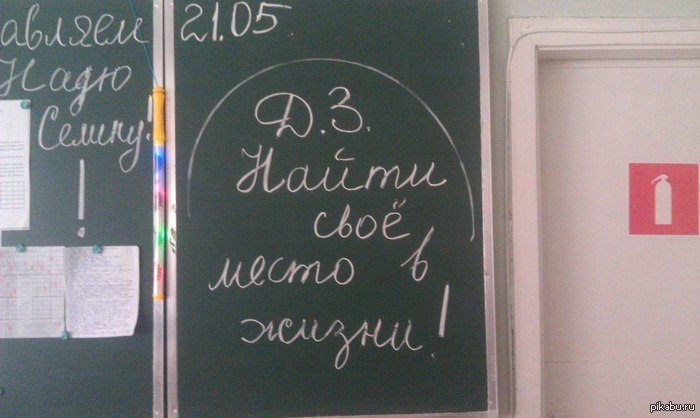 авляем
Надю
Семину!
!
21.05.
Д.З.
Найти
своё
место в
жизни!
pikabu.ru